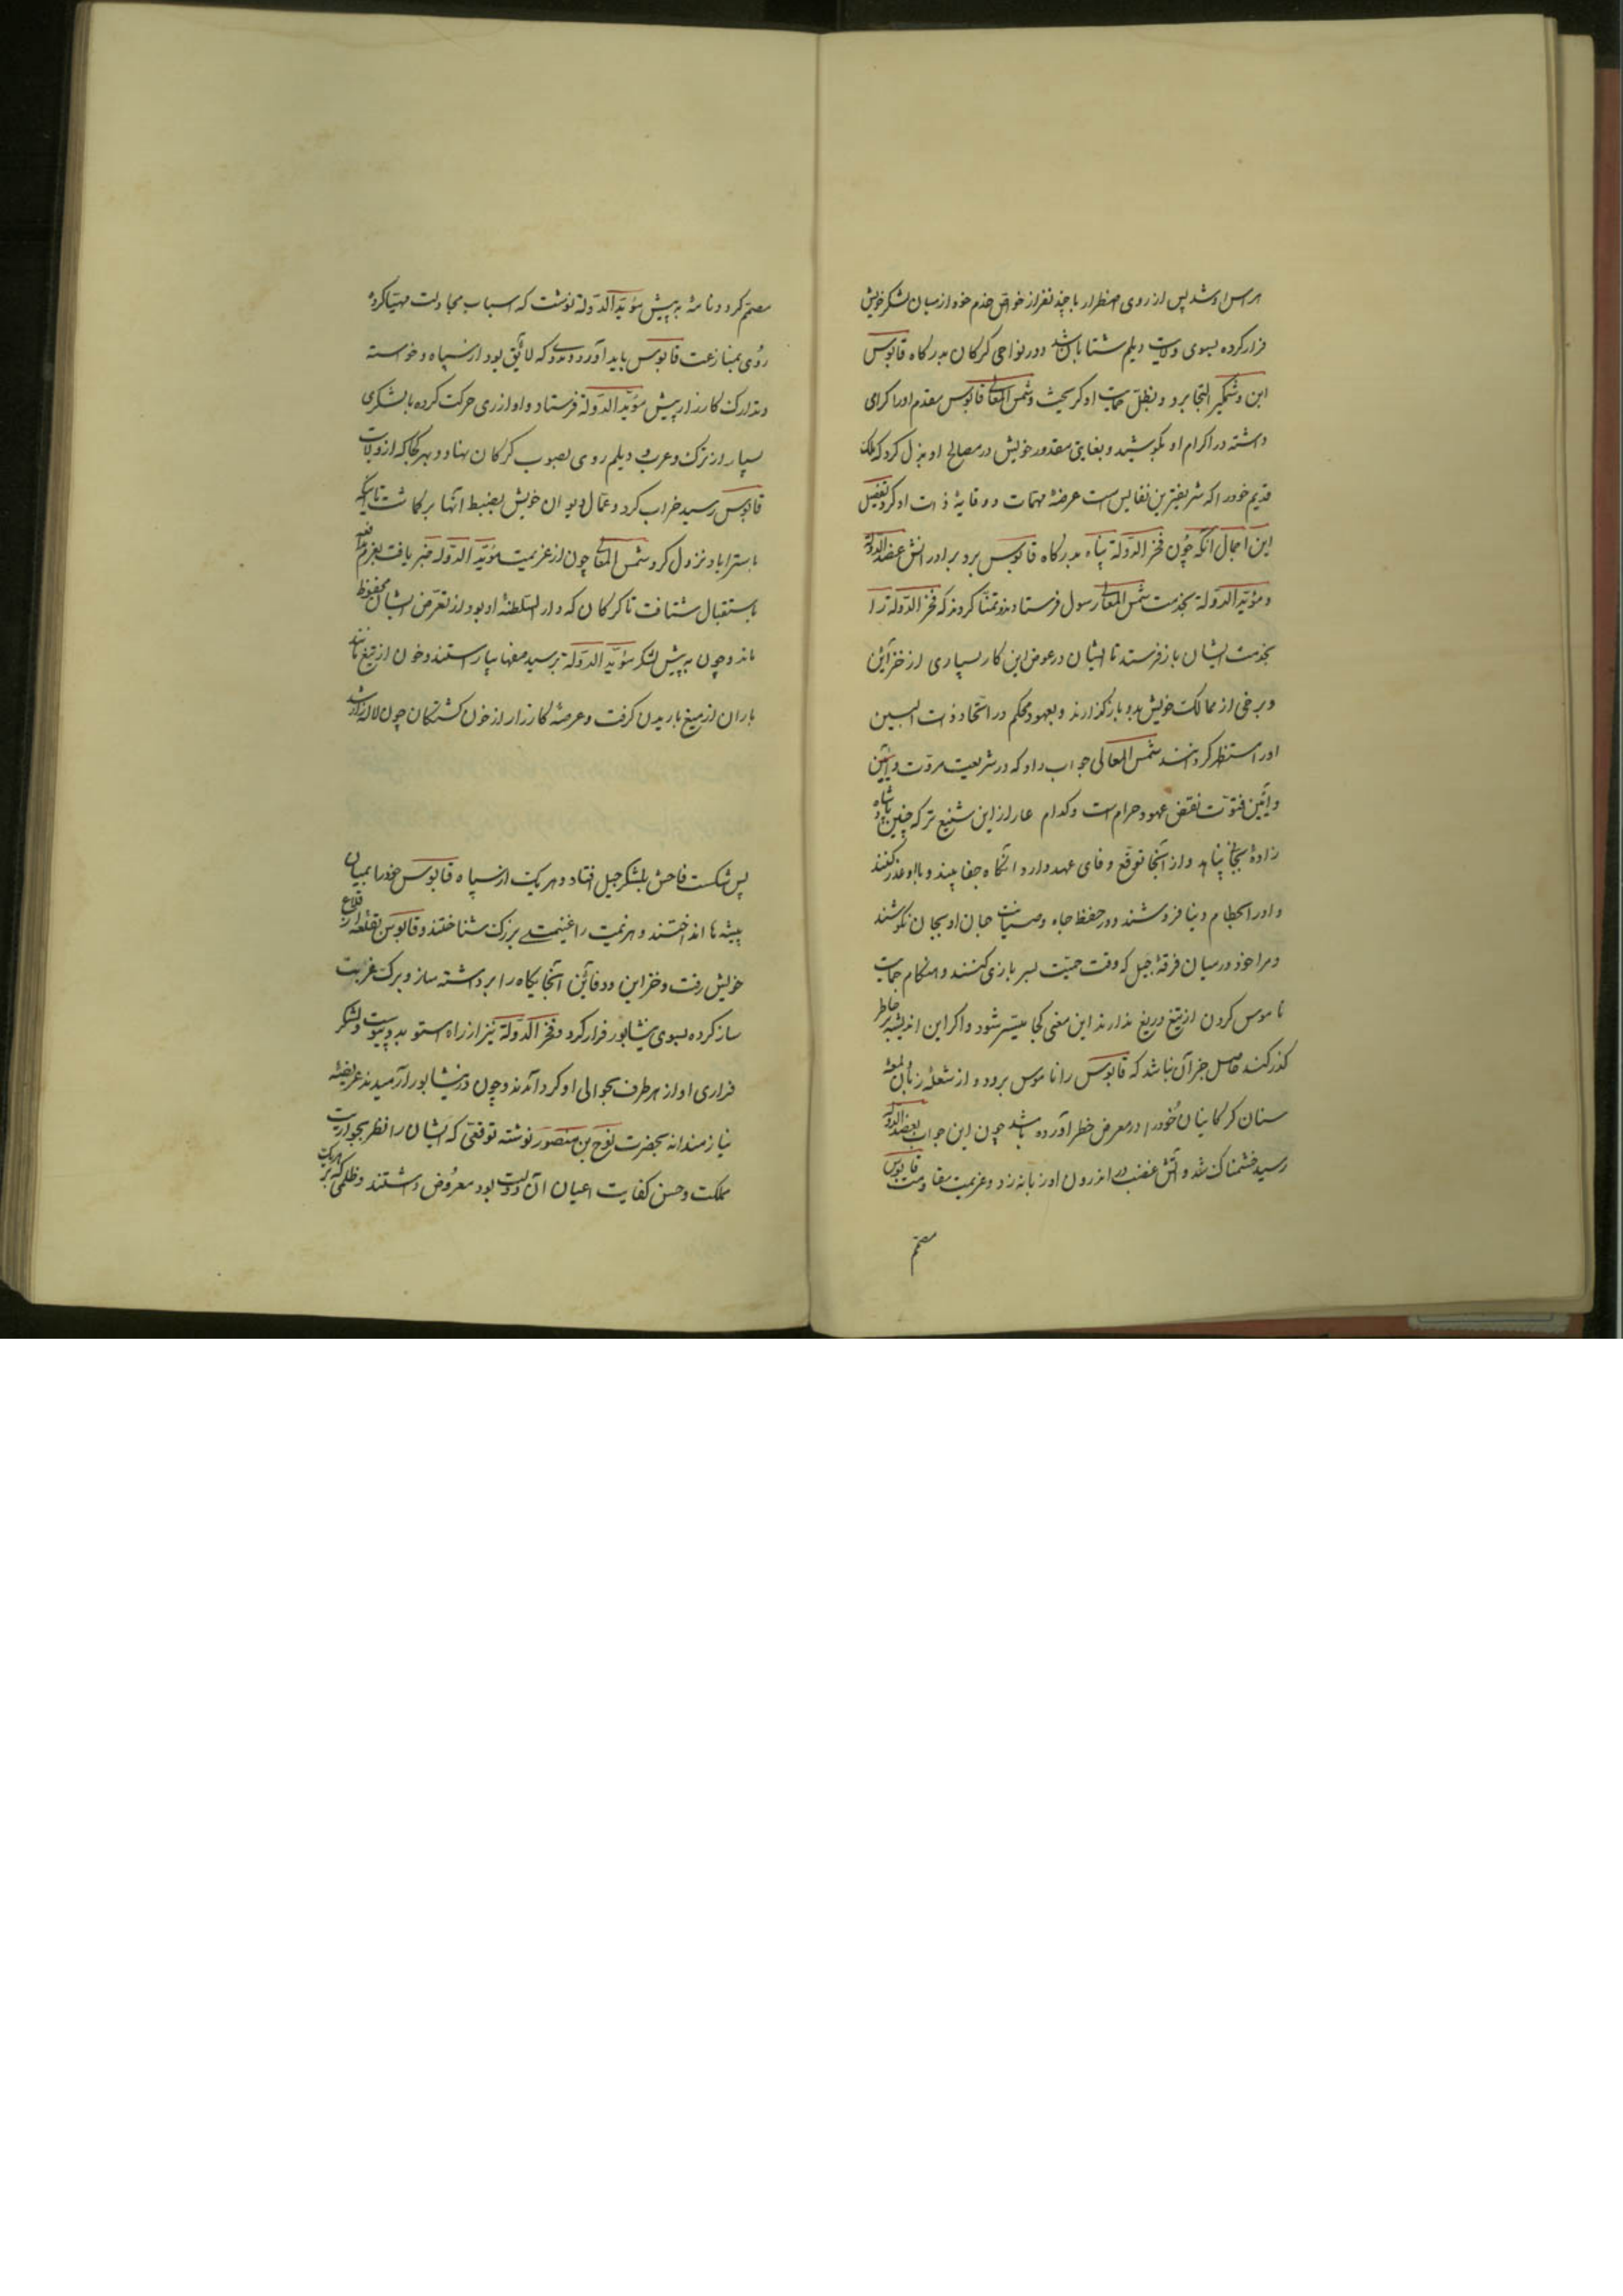 هراس او شد پس از روی اضطرار با چند نفر از خواص خدم خود از میان لشکر خویش
فرار کرده بسوی ولایت دیلم شتابان شد و در نواحی کرکان بدرکاه قابوس
ابن وشمکیر التجا برد و بظل حمایت او کریخت و شمس المعالی قابوس مقدم او را کرامی
داشته در اکرام او بکوشید و بغایتی مقدور خویش در مصالح او بذل کرد که ملک
قدیم خود را که شریفترین نفایس است عرضهٔ مهمات و وقایهٔ ذات او کرد تفصیل
این اجمال آنکه چون فخر الدولة پناه بدرکاه قابوس برد برادرانش عضد الدولة
و مؤید الدولة بخدمت شمس المعالی رسول فرستادند و تمنا کردند که فخر الدولة را
بخدمت ایشان باز فرستد تا ایشان در عوض این کار بسیاری از خزاین
و برخی از ممالک خویش بدو باز کذارند و بعهود محکم در اتحاد ذات البین
او را مستظهر کردانند شمس المعالی جواب داد که در شریعت مروت و آئین
و آئین فتوت نقض عهود حرام است و کدام عار از این شنیع تر که چنین پادشاه
زادهٔ بجائی پناهد و از آنجا توقع وفای عهد دارد انکاه جفا بیند و با او غدر کنند
و او را بحطام دنیا فروشند و در حفظ جاه و صیانت جان او بجان نکوشند
و مرا خود در میان فرقهٔ جیل که وقت حمیت بسر بازی کنند و هنکام حمایت
ناموس کردن از تیغ دریغ ندارند این معنی کجا میسر شود و اکر این اندیشه بر خاطر
کذر کند حاصل جز آن نباشد که قابوس را ناموس برود و از شعلهٔ زبان لمعهٔ
سنان کرکانیان خود را در معرض خطر آورده باشد چون این جواب بعضد الدولة
رسید خشمناک شد و آتش غضب در اندرون او زبانه زد و عزیمت مقاومت قابوس
مصمم
مصمم کرد و نامهٔ به پیش مؤید الدولة نوشت که اسباب مجادلت مهیا کرده
روی بمنازعت قابوس باید آورد و مددی که لائق بود از سپاه و خواسته
و تدارک کارزار پیش مؤید الدولة فرستاد و او از ری حرکت کرده با لشکری
بسیار از ترک و عرب و دیلم روی بصوب کرکان نهاد و بهر کجا که از ولایت
قابوس رسید خراب کرد و عمال دیوان خویش بضبط آنها بر کماشت تا آنکه
باستراباد نزول کرد شمس المعالی چون از عزیمت مؤید الدولة خبر یافت بعزم مدافعه
باستقبال شتافت تا کرکان که دار السلطنهٔ او بود از تعرض ایشان محفوظ
ماند و چون به پیش لشکر مؤید الدولة برسید صفها بیاراستند و خون از تیغ مانند
باران از میغ باریدن کرفت و عرصهٔ کارزار از خون کشتکان چون لاله زار شد
پس شکست فاحش بلشکر جیل افتاد و هر یک از سپاه قابوس خود را بمیان
بیشه ها انداختند و هزیمت را غنیمتی بزرک شناختند و قابوس بقلعهٔ از قلاع
خویش رفت و خزاین و دفائن آنجایکاه را برداشته ساز و برک غربت
ساز کرده بسوی نیشابور فرار کرد و فخر الدولة نیز از راه استو بدو پیوست و لشکر
فراری او از هر طرف بحوالی او کرد آمدند و چون در نیشابور آرمیدند عریضهٔ
نیازمندانه بحضرت نوح بن منصور نوشته توقعی که ایشان را نظر بجوار
مملکت و حسن کفایت اعیان آن دولت بود معروض داشتند و ظلمی که بر هر یک